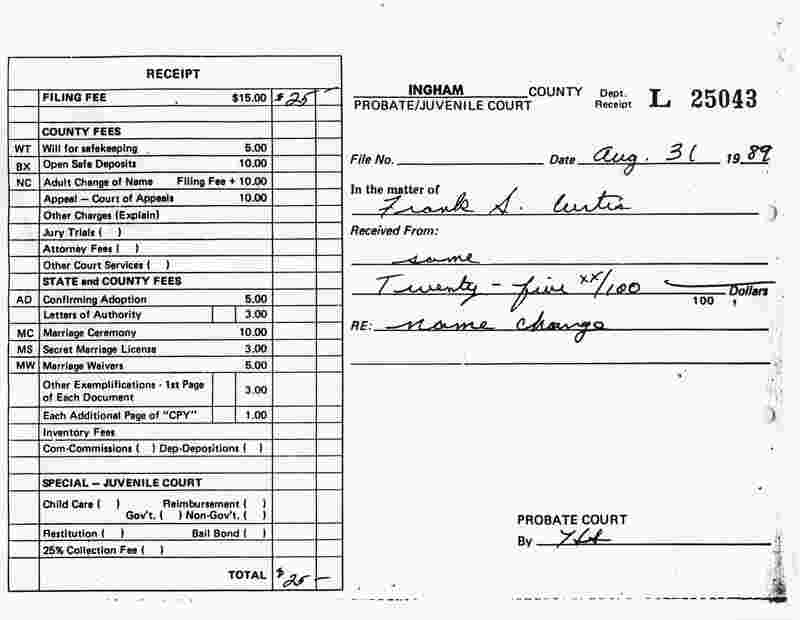 RECEIPT
FILING FEE $15.00 $25 -
COUNTY FEES
WT Will for safekeeping 5.00
BX Open Safe Deposits 10.00
NC Adult Change of Name Filing Fee + 10.00
Appeal — Court of Appeals 10.00
Other Charges (Explain)
Jury Trials ( )
Attorney Fees ( )
Other Court Services ( )
STATE and COUNTY FEES
AD Confirming Adoption 5.00
Letters of Authority 3.00
MC Marriage Ceremony 10.00
MS Secret Marriage License 3.00
MW Marriage Waivers 5.00
Other Exemplifications - 1st Page
of Each Document 3.00
Each Additional Page of "CPY" 1.00
Inventory Fees
Com-Commissions ( ) Dep-Depositions ( )
SPECIAL — JUVENILE COURT
Child Care ( ) Reimbursement ( )
Gov't. ( ) Non-Gov't. ( )
Restitution ( ) Bail Bond ( )
25% Collection Fee ( )
TOTAL $25 -
INGHAM COUNTY Dept. Receipt L 25043
PROBATE/JUVENILE COURT
File No. Date Aug. 31 1989
In the matter of
Frank S. Curtis
Received From:
same
Twenty - five xx/100 Dollars
100
RE: name change
PROBATE COURT
By